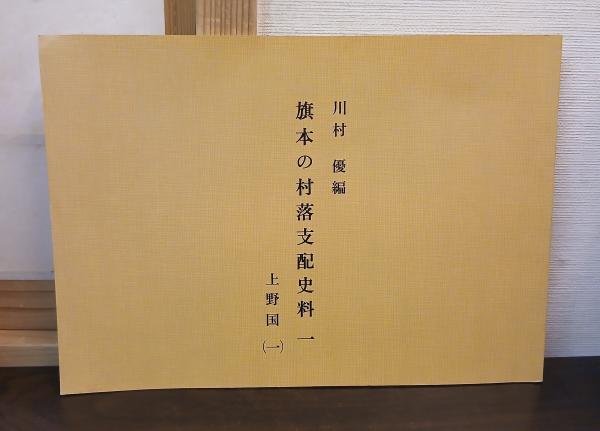 川村　優編
旗本の村落支配史料一
上野国(一)